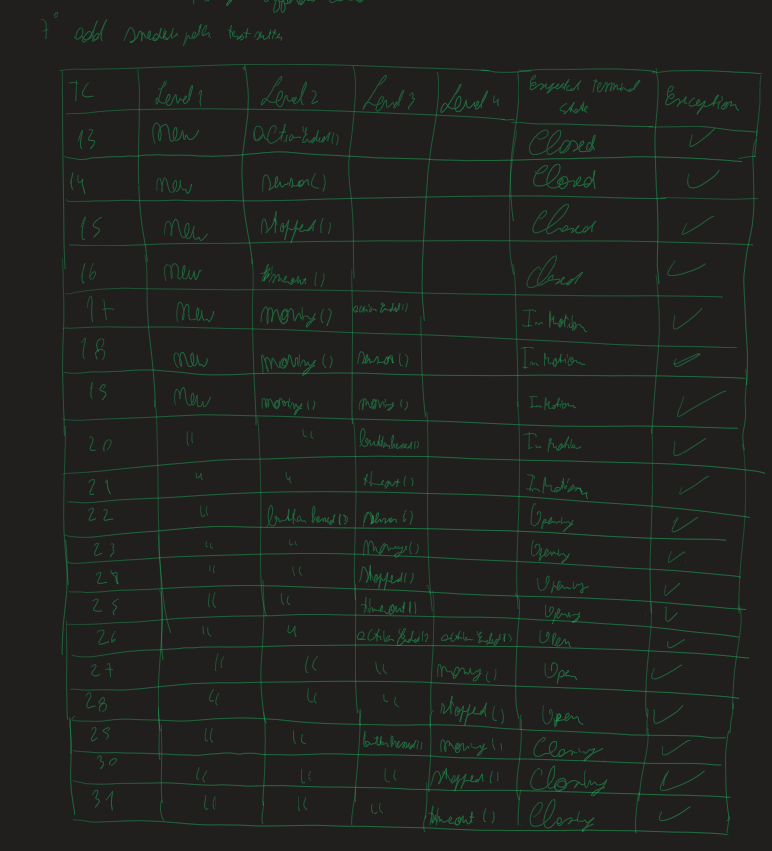 7° add sneak path test suite
TC Level 1 Level 2 Level 3 Level 4 Expected Terminal State Exception
13 new actionEnded() Closed ✓
14 new sensor() Closed ✓
15 new stopped() Closed ✓
16 new timeout() Closed ✓
17 new moving() actionEnded() In Motion ✓
18 new moving() sensor() In Motion ✓
19 new moving() moving() In Motion ✓
20 " " In Motion ✓
21 " " timeout() In Motion ✓
22 " sensor() Opening ✓
23 " " moving() Opening ✓
24 " " stopped() Opening ✓
25 " " timeout() Opening ✓
26 " " actionEnded() actionEnded() Open ✓
27 " " " moving() Open ✓
28 " " " stopped() Open ✓
29 " " moving() Closing ✓
30 " " " stopped() Closing ✓
31 " " " timeout() Closing ✓